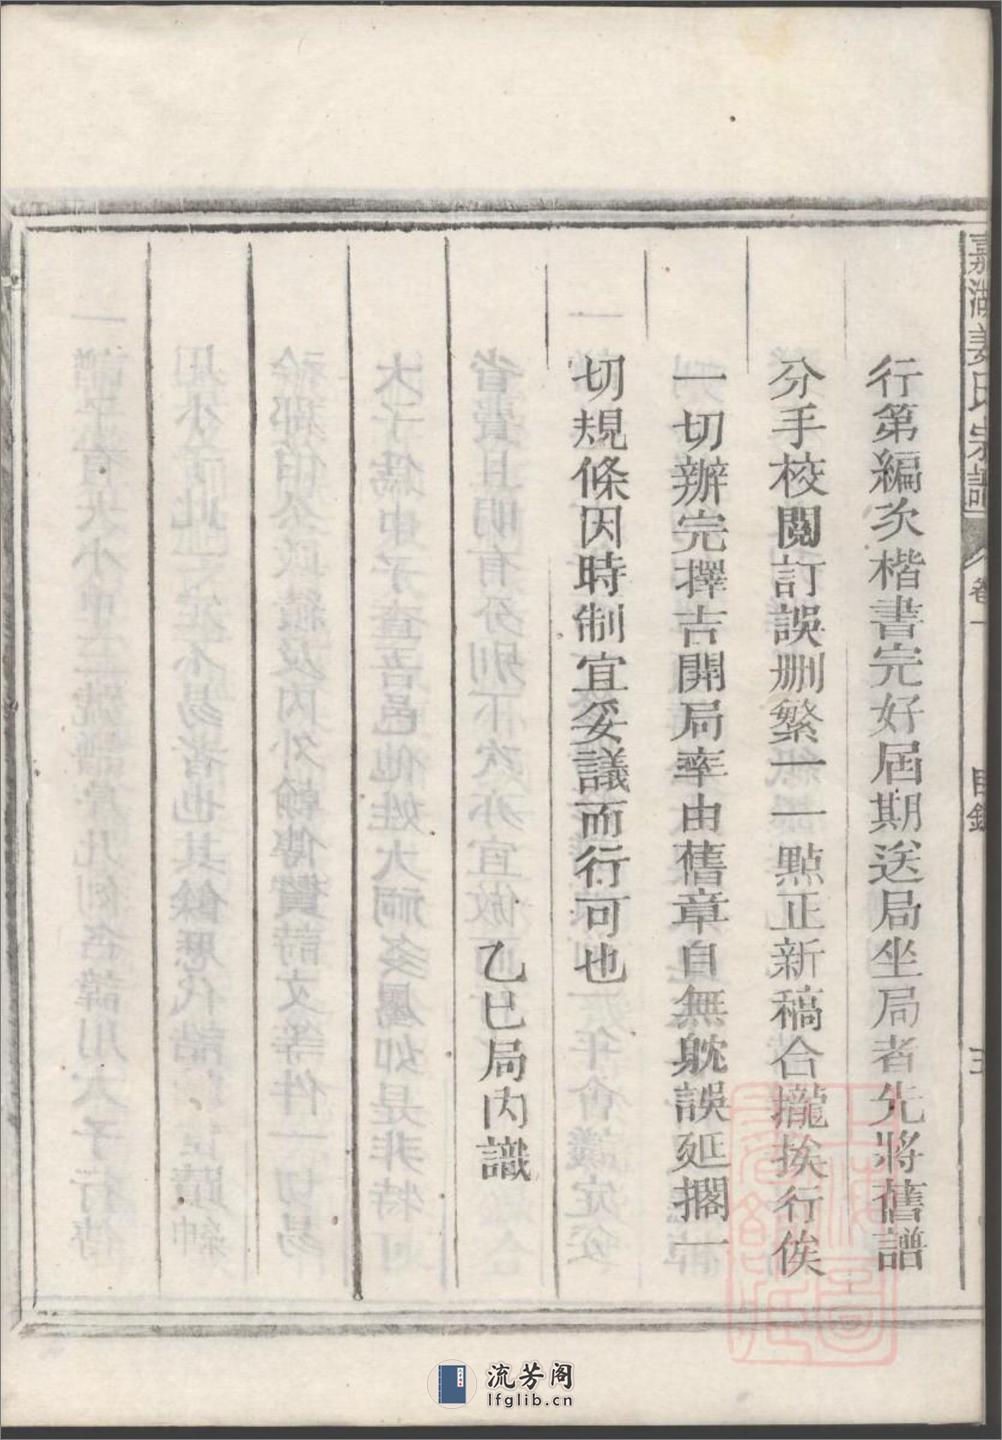 嘉湖姜氏宗譜
卷一
目錄
行第編次楷書完好屆期送局坐局者先將舊譜
分手校閱訂誤刪繁一一點正新稿合攏挨行俟
一切辦完擇吉開局率由舊章自無躭誤延擱一
切規條因時制宜妥議而行可也
乙巳局內識
流芳阁
lfglib.cn